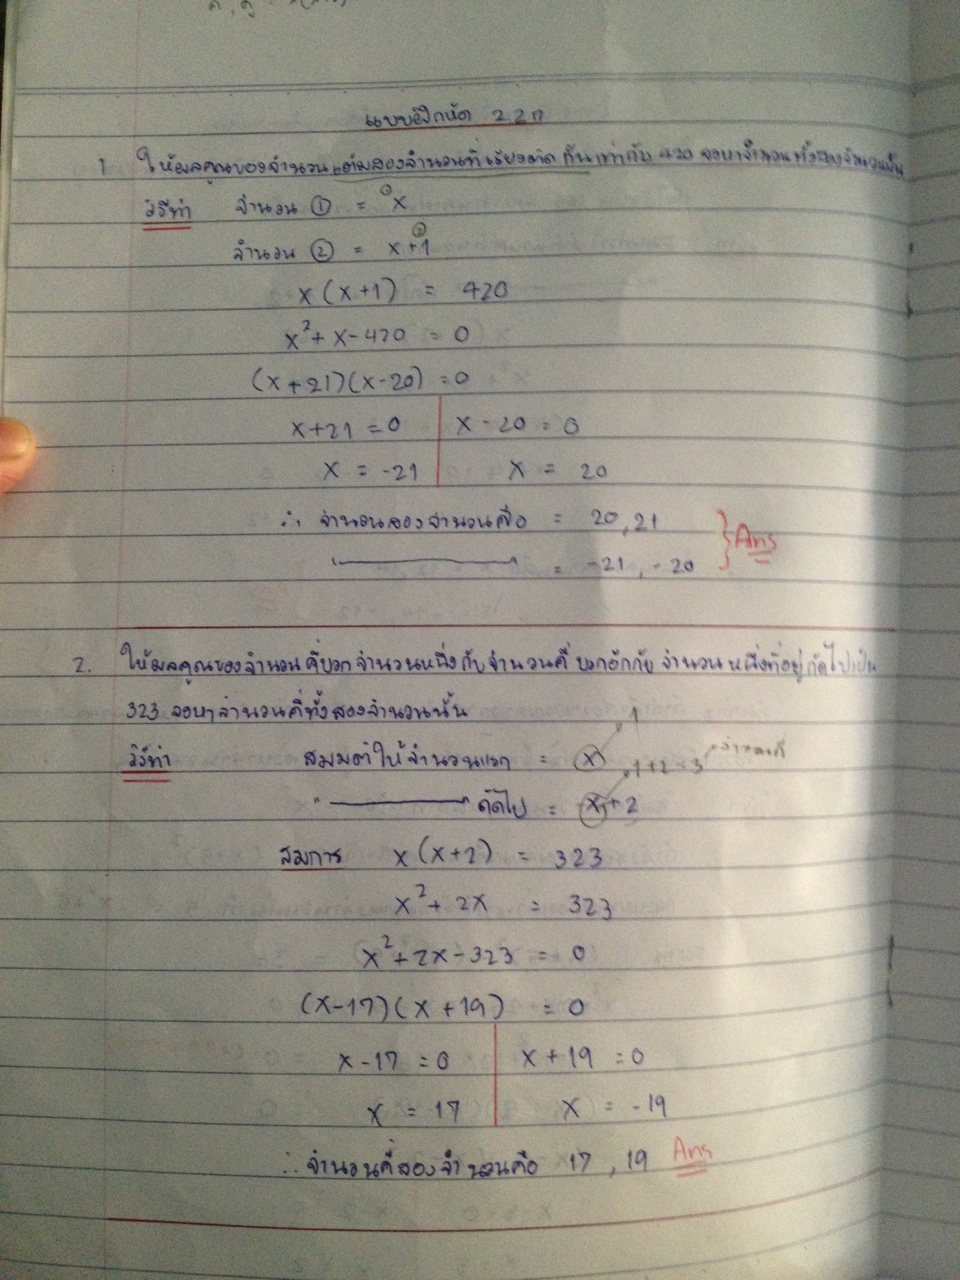 แบบฝึกหัด 2.2 ก
1. ให้ผลคูณของจำนวนเต็มสองจำนวนที่เรียงติดกันเท่ากับ 420 จงหาจำนวนทั้งสองจำนวนนั้น
วิธีทำ จำนวน ① = x
จำนวน ② = x+1
x(x+1) = 420
x²+x-420 = 0
(x+21)(x-20) = 0
x+21 = 0 x-20 = 0
x = -21 x = 20
∴ จำนวนสองจำนวนคือ = 20, 21
= -21, -20
Ans
2. ให้ผลคูณของจำนวนคี่บวกจำนวนหนึ่งกับจำนวนคี่บวกอีกกับจำนวนหนึ่งที่อยู่ถัดไปเป็น
323 จงหาจำนวนคี่ทั้งสองจำนวนนั้น
1
วิธีทำ สมมติให้จำนวนแรก = x
1+2=3
" ถัดไป = x+2
สมการ x(x+2) = 323
x²+2x = 323
x²+2x-323 = 0
(x-17)(x+19) = 0
x-17 = 0 x+19 = 0
x = 17 x = -19
∴ จำนวนคี่สองจำนวนคือ 17, 19 Ans